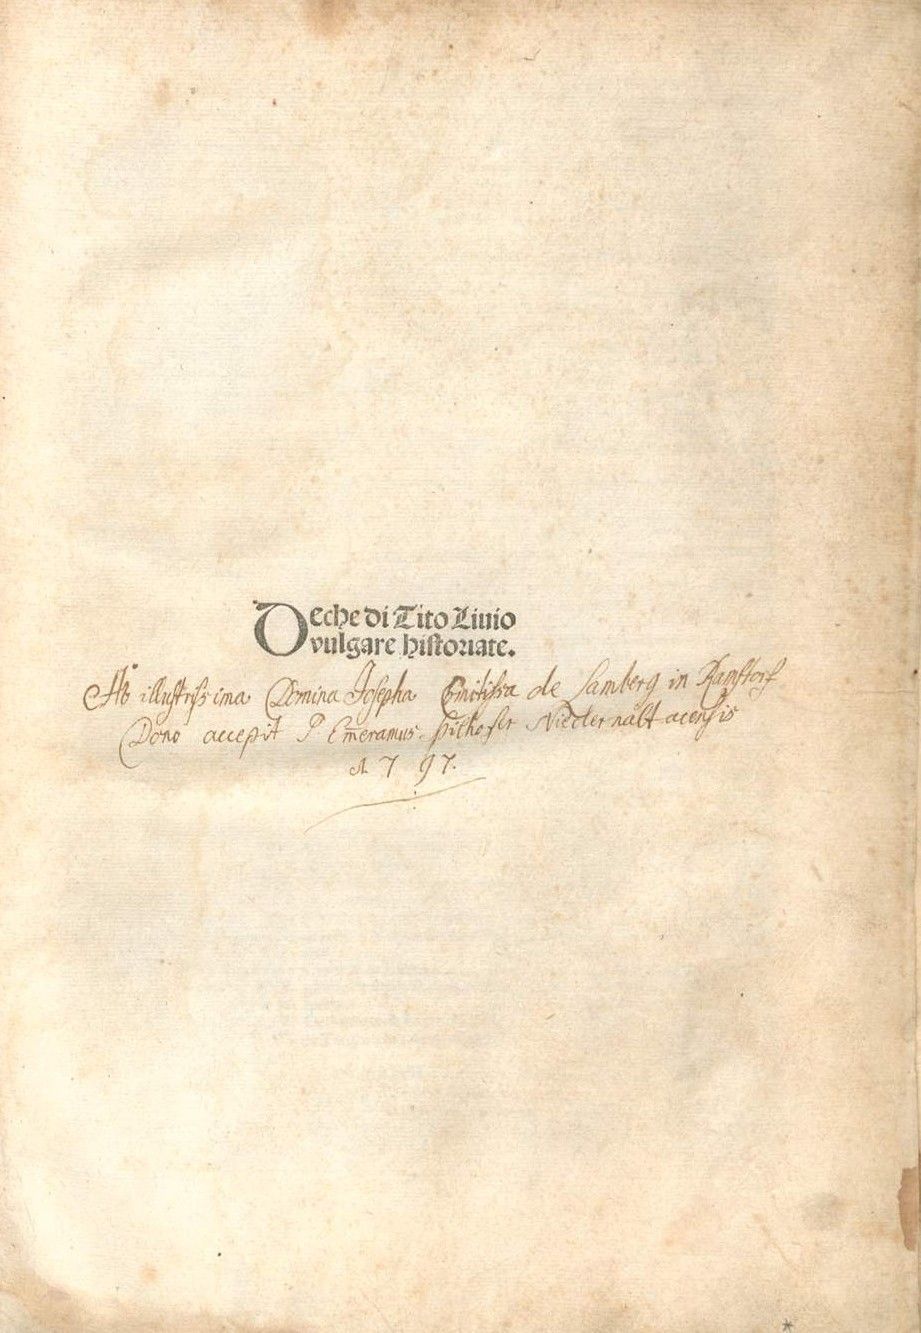 Deche di Tito Liuio
vulgare historiate.
Ab illustrissima Domina Josepha Comitissa de Lamberg in Ramstorf
Dono accepit P. Em̄eramus Niederaltacensis
1797.
*